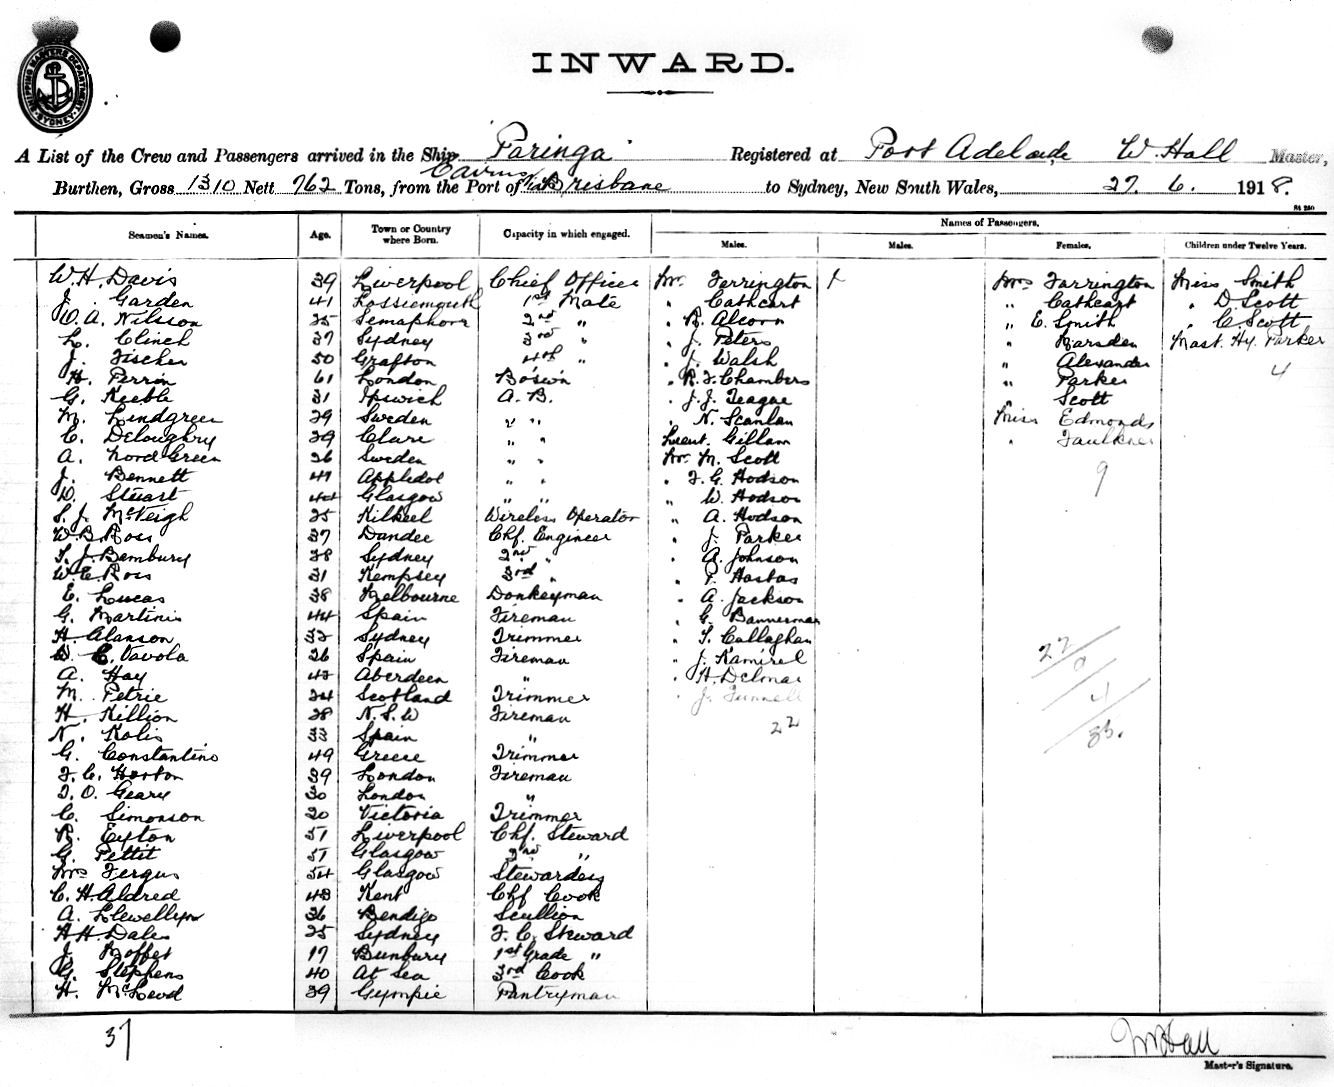 SHIPPING MASTERS DEPARTMENT SYDNEY
INWARD.
A List of the Crew and Passengers arrived in the Ship "Paringa" Registered at Port Adelaide W. Hall Master,
Cairns
Burthen, Gross 1310 Nett 762 Tons, from the Port of via Brisbane to Sydney, New South Wales, 27. 6. 1918.
Seamen's Names. Age. Town or Country where Born. Capacity in which engaged. Names of Passengers.
Males. Males. Females. Children under Twelve Years.
W. H. Davis 39 Liverpool Chief Officer Mr. Farrington Mrs Farrington Miss Smith
J. Garden 41 Lossiemouth 1st Mate " Cathcart " Cathcart " D Scott
O. A. Nilsson 25 Semaphore 2nd " " R. Alcorn " E. Smith " C. Scott
L. Clinch 37 Sydney 3rd " " J. Peters " Marsden Mast. Hy. Parker
J. Fischer 50 Grafton 4th " " J. Walsh " Alexander 4
H. Perrin 61 London Bo'sw'n " R. F. Chambers " Parker
G. Keeble 31 Ipswich A. B. " J. J. Teague " Scott
M. Lindgreen 29 Sweden " " " N. Scanlan Miss Edmonds
C. Deloughry 29 Clare " " Lieut. Gillam " Faulkner
A. Nord Green 26 Sweden " " Mr. M. Scott 9
J. Bennett 47 Appledol " " " F. G. Hodson
D. Stuart 44 Glasgow " " " W. Hodson
S. J. McVeigh 25 Kilkeel Wireless Operator " A. Hodson
W. B. Ross 37 Dundee Chf. Engineer " J. Parker
S. J. Bambury 28 Sydney 2nd " " A. Johnson
W. E. Ross 31 Kempsey 3rd " " P. Hastas
E. Lucas 38 Melbourne Donkeyman " A. Jackson
G. Martinis 44 Spain Fireman " G. Bannerman
H. Alanson 32 Sydney Trimmer " S. Callaghan
C. Vavola 26 Spain Fireman " J. Ramirel 22
A. Hay 42 Aberdeen " " H. Delmar 9
M. Petrie 24 Scotland Trimmer " J. Funnell 4
H. Killion 28 N. S. W Fireman 22
N. Kolis 33 Spain " 35.
G. Constantino 49 Greece Trimmer
F. C. Horton 39 London Fireman
T. O. Geary 30 London "
C. Simonson 20 Victoria Trimmer
R. Eyton 51 Liverpool Chf. Steward
G. Pettit 51 Glasgow 2nd "
Mrs Fergus 54 Glasgow Stewardess
C. H. Aldred 48 Kent Chf Cook
A. Llewellyn 26 Bendigo Scullion
A H. Dales 25 Sydney F. C. Steward
J. Moffet 17 Bunbury 1st Grade "
G. Stephens 40 At Sea 3rd Cook
H. McLeod 39 Gympie Pantryman
37
W Hall
Master's Signature.